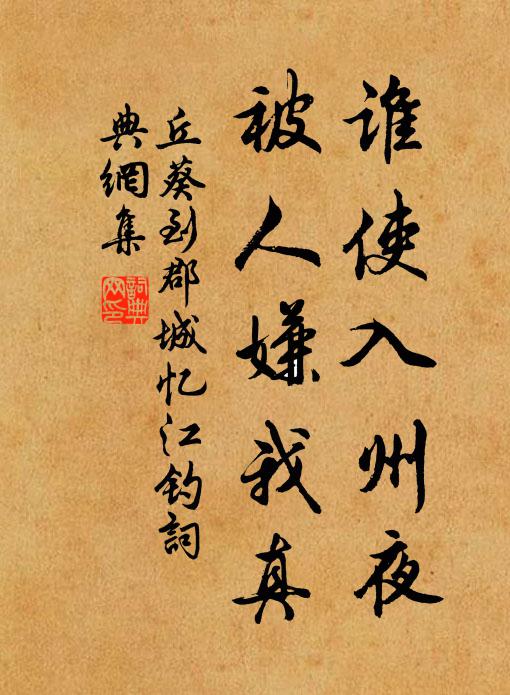 谁使入州夜
被人嫌我真
丘葵到郡城忆江钓詞
典網集
詞典
网印